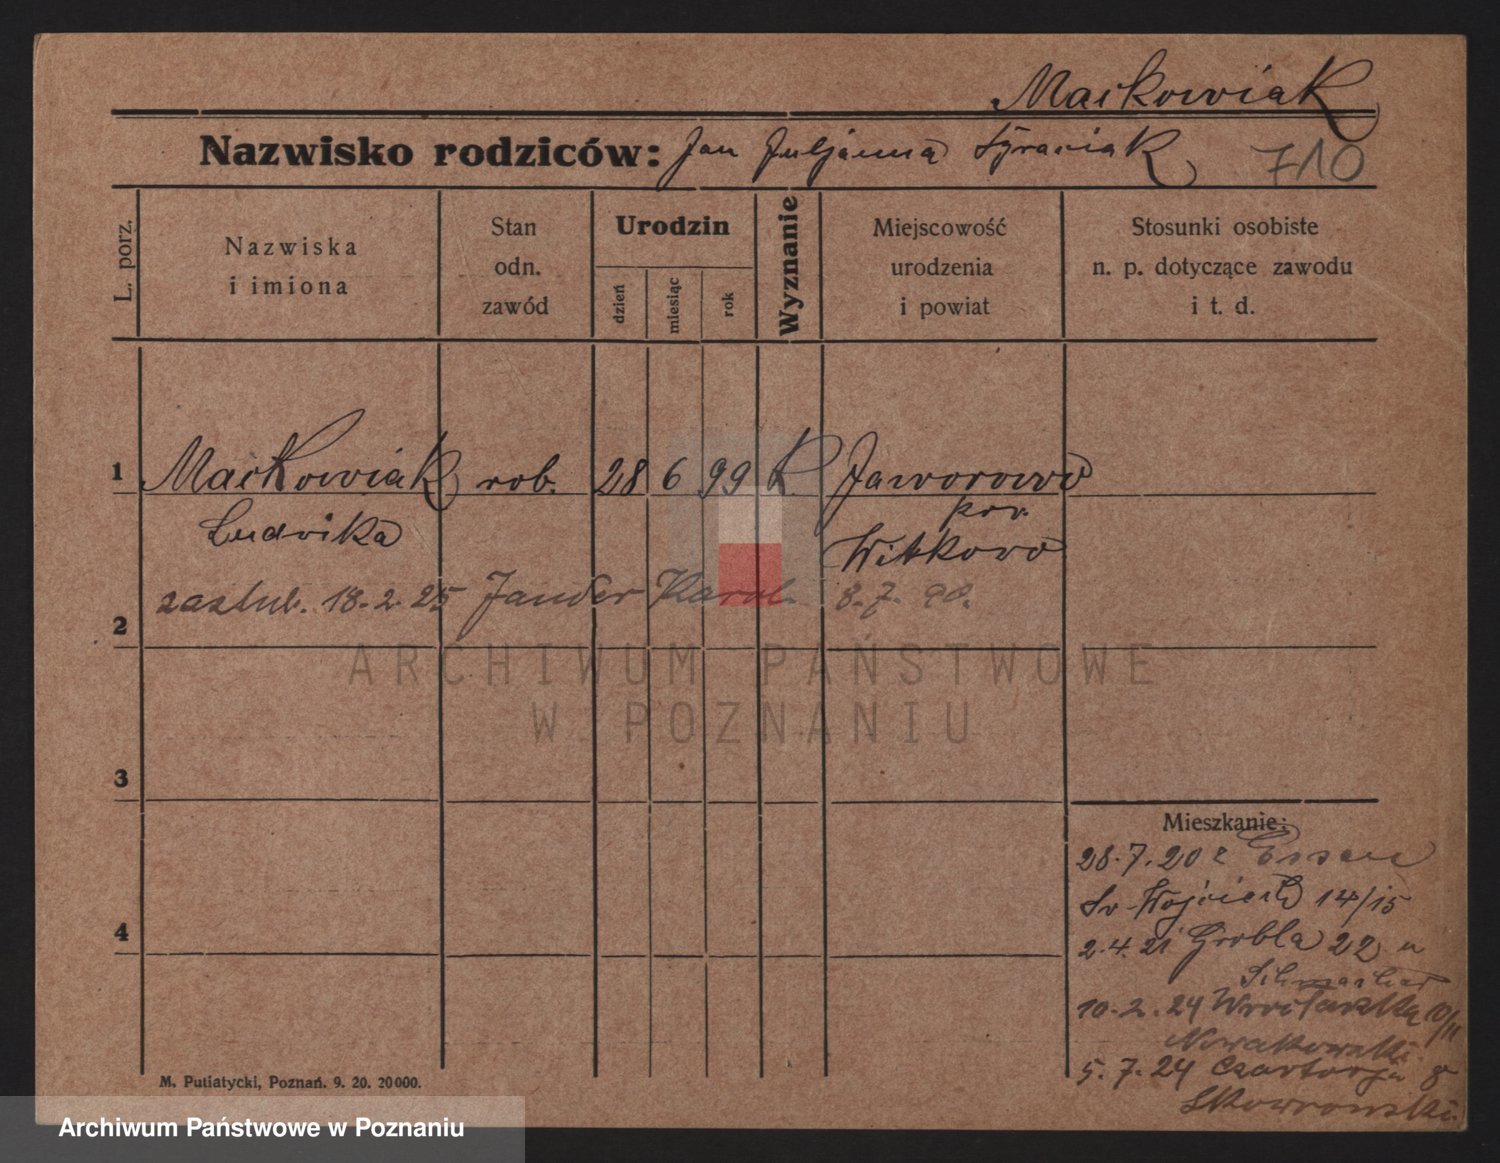 Maćkowiak
Nazwisko rodziców: Jan Juljanna
710
L. porz.
Nazwiska
i imiona
Stan
odn.
zawód
Urodzin
dzień
miesiąc
rok
Wyznanie
Miejscowość
urodzenia
i powiat
Stosunki osobiste
n. p. dotyczące zawodu
i t. d.
1
Maćkowiak rob. 28 6 99 K Jaworowo
Ludwika pow.
Witkowo
zaślub. 18.2.25 Jander Karol 8.7.90.
2
ARCHIWUM PAŃSTWOWE
W POZNANIU
3
Mieszkanie:
28.7.20 z Essen
Św. Wojciech 14/15
4
2.4.21 Grobla 22 u
10.2.24 Wrocławska
Nowakowski.
5.7.24 Czartorja 8
Skowronski.
M. Putiatycki, Poznań. 9. 20. 20000.
Archiwum Państwowe w Poznaniu